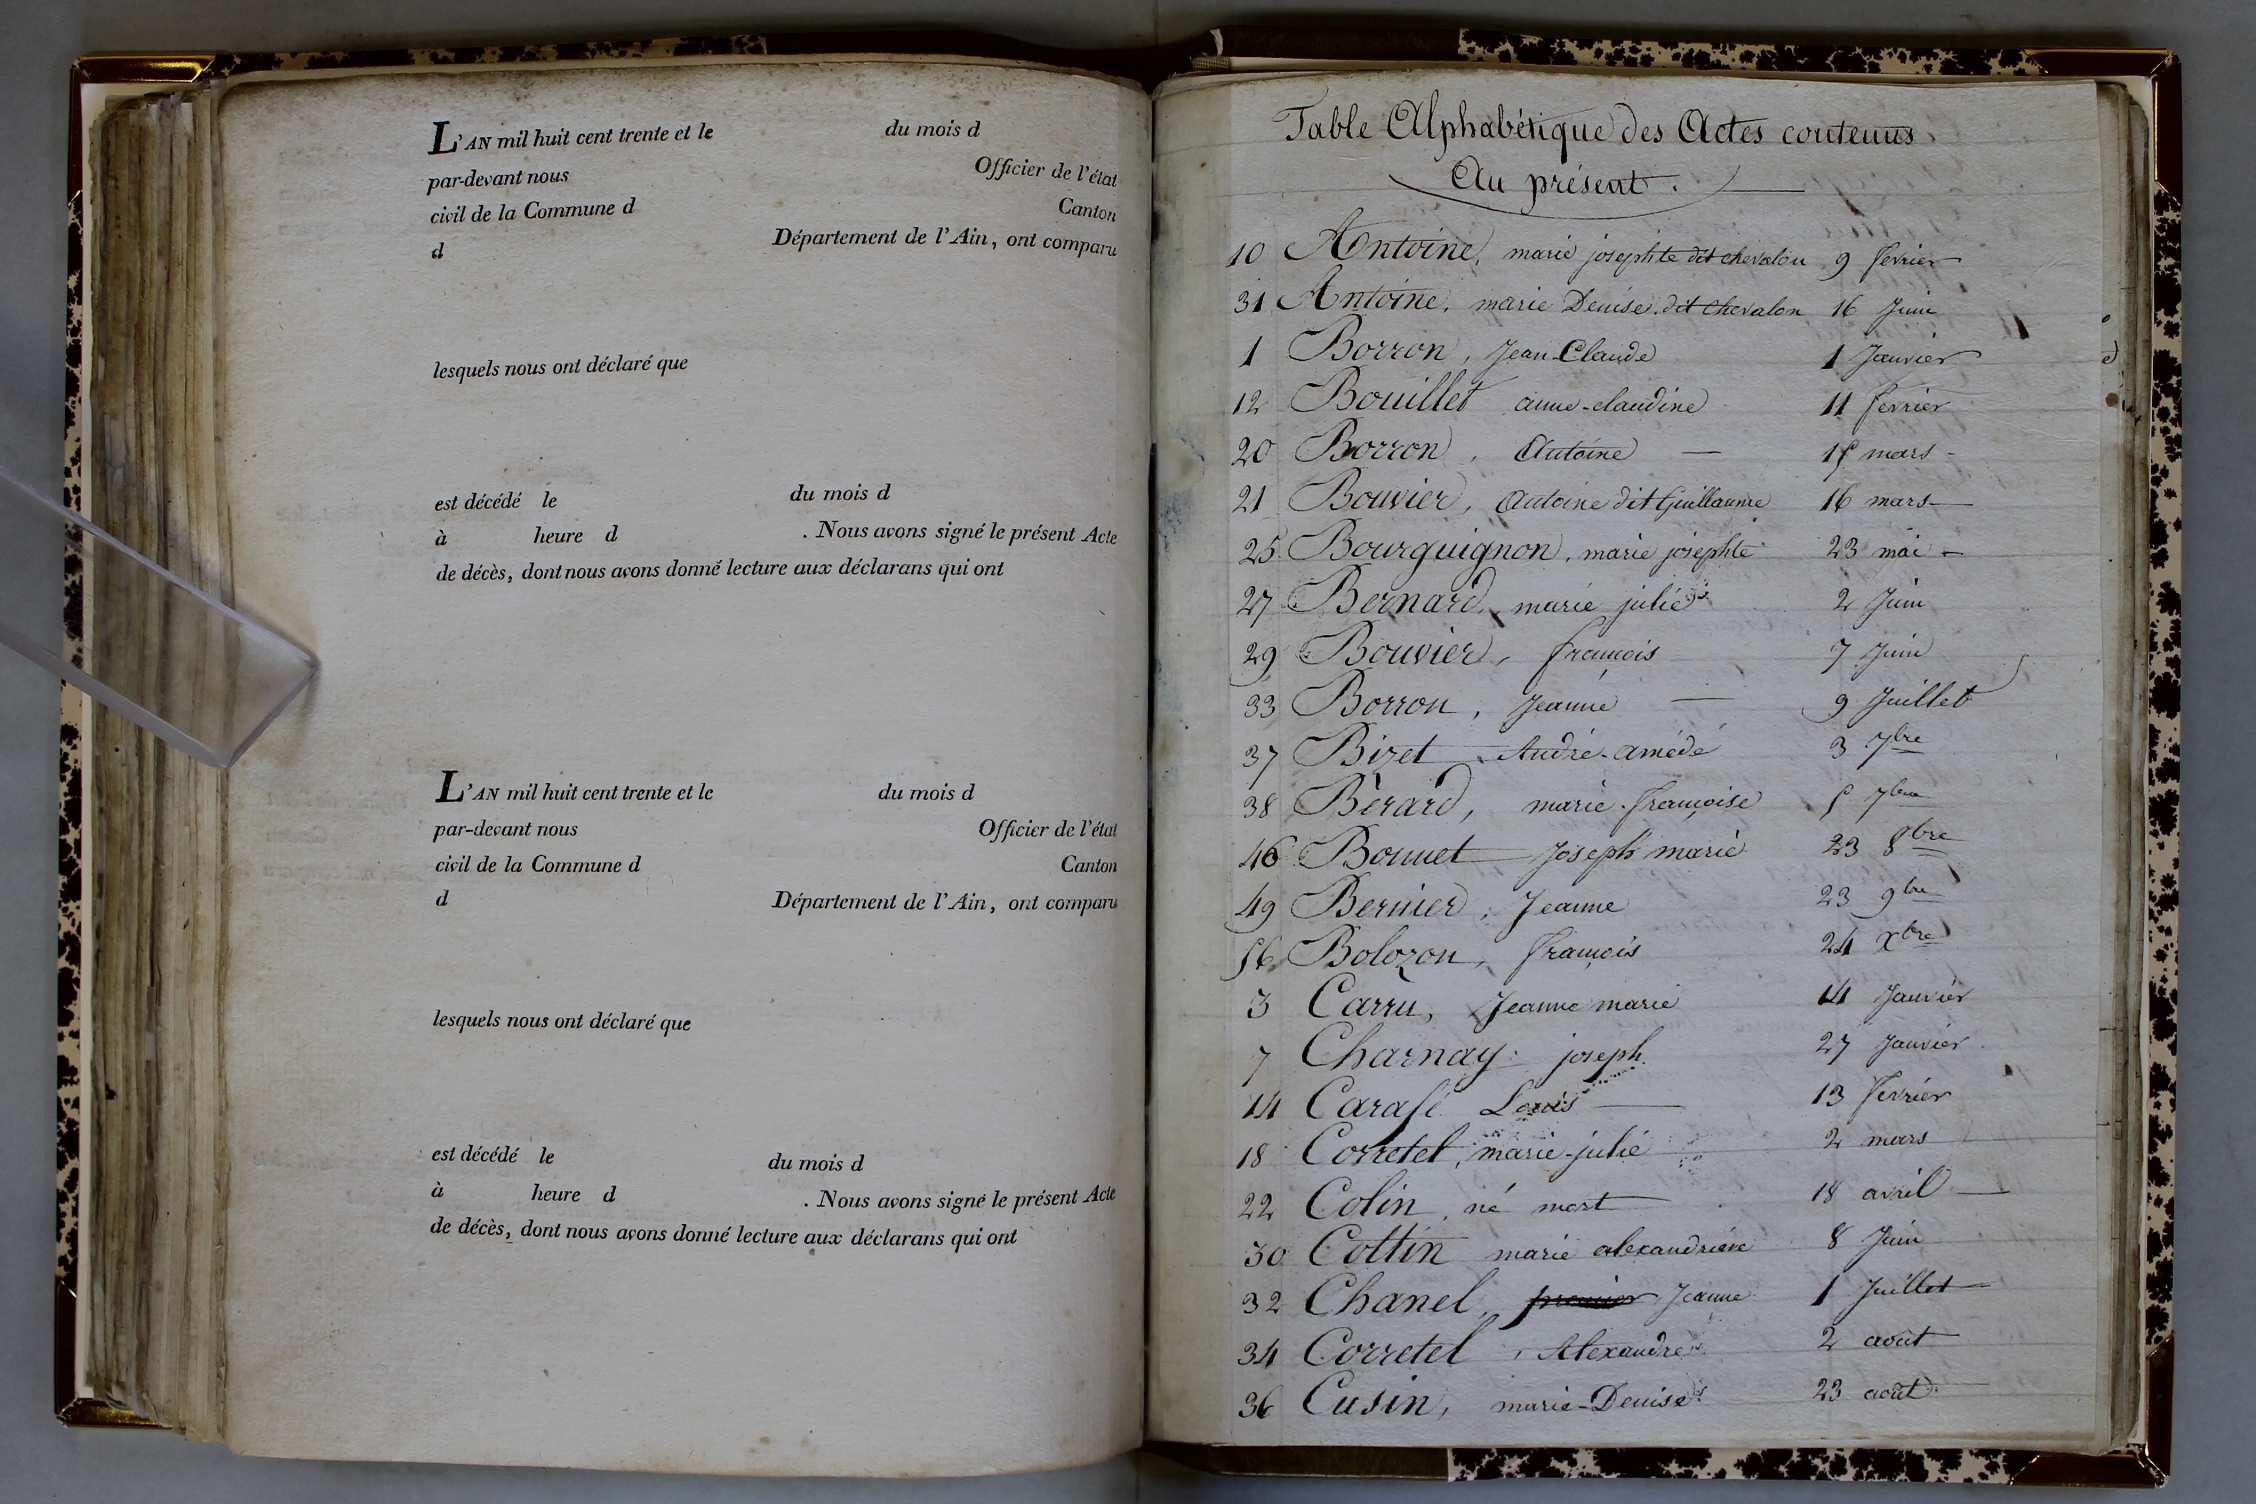 L'AN mil huit cent trente et le du mois d
par-devant nous Officier de l'état
civil de la Commune d Canton
d Département de l'Ain, ont comparu
lesquels nous ont déclaré que
est décédé le du mois d
à heure d . Nous avons signé le présent Acte
de décès, dont nous avons donné lecture aux déclarans qui ont
L'AN mil huit cent trente et le du mois d
par-devant nous Officier de l'état
civil de la Commune d Canton
d Département de l'Ain, ont comparu
lesquels nous ont déclaré que
est décédé le du mois d
à heure d . Nous avons signé le présent Acte
de décès, dont nous avons donné lecture aux déclarans qui ont
Table Alphabétique des Actes contenus
Au présent.
10 Antoine, marie josephte dit chevalon 9 fevrier
31 Antoine, marie Denise dit chevalon 16 Juin
1 Borron, Jean-Claude 1 Janvier
12 Bouillet anne-claudine 11 fevrier
20 Borron, Antoine 15 mars
21 Bouvier, Antoine dit Guillaume 16 mars
25 Bourguignon, marie josephte 23 mai
27 Bernard, marie julie 2 Juin
29 Bouvier, françois 7 Juin
33 Borron, Jeanne 9 Juillet
37 Bizet André-amédé 3 7bre
38 Bèrard, marie-françoise 5 7bre
46 Bonnet Joseph marie 23 8bre
49 Bernier, Jeanne 23 9bre
56 Bolozon, françois 24 Xbre
3 Carru, Jeanne marie 14 Janvier
7 Charnay joseph 27 Janvier
14 Carasé Louis 13 fevrier
18 Corretel, marie-julie 2 mars
22 Colin, né mort 18 avril
30 Cottin marie alexandrine 8 Juin
32 Chanel, Jeanne 1 Juillet
34 Corretel, Alexandre 2 août
36 Cusin, marie-Denise 23 août